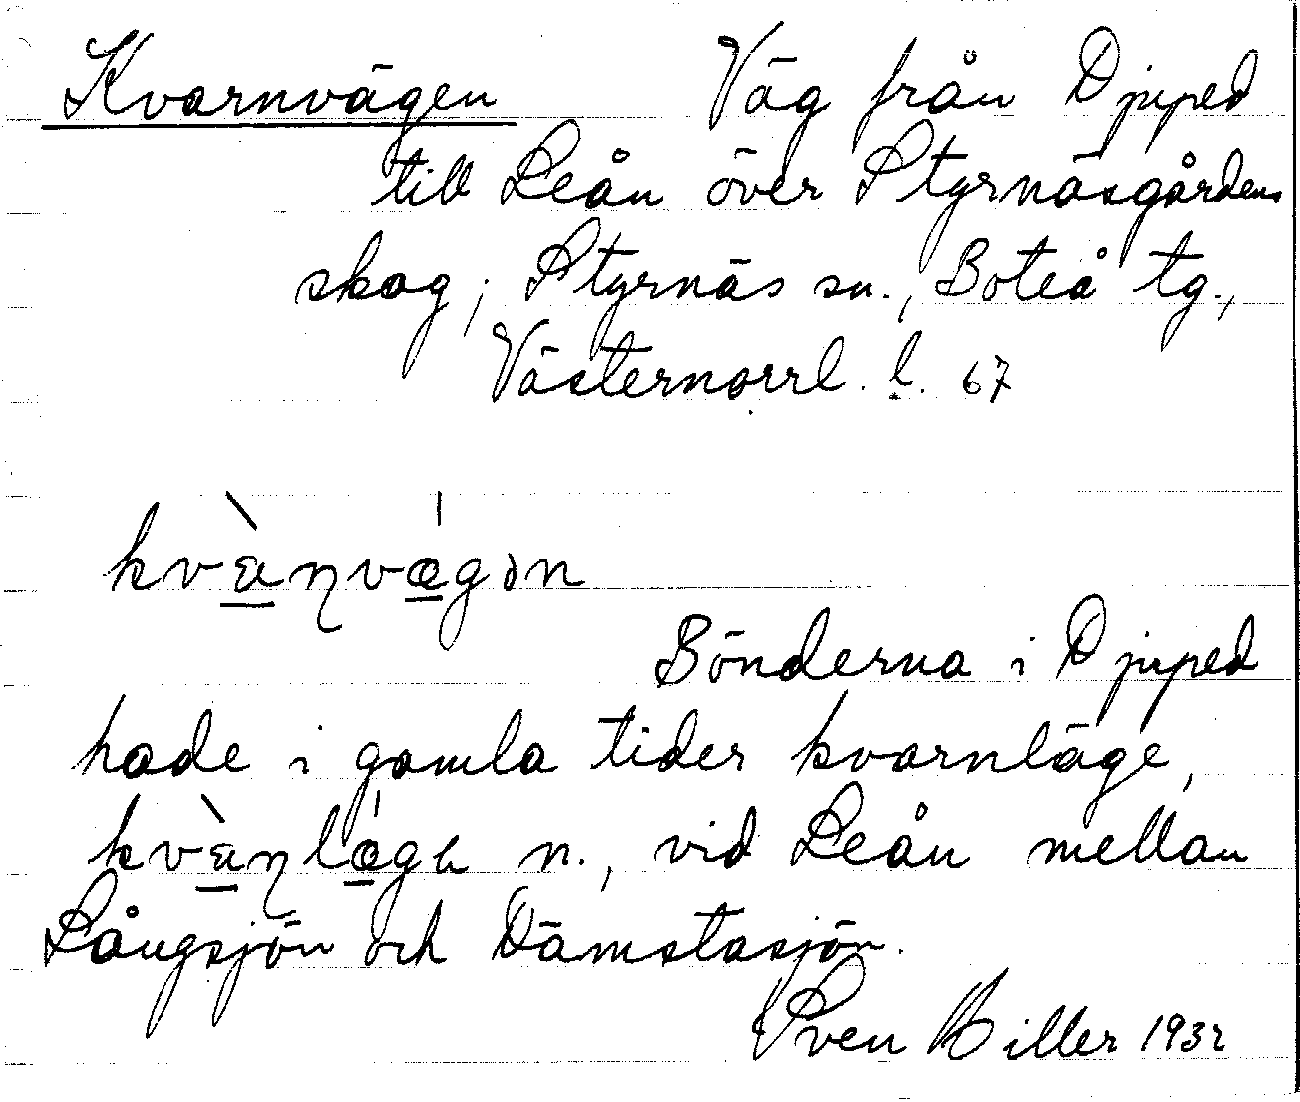 Kvarnvägen Väg från Djuped
till Leån över Styrnäsgårdens
skog; Styrnäs sn., Boteå tg.,
Västernorrl. l. 67
Bönderna i Djuped
hade i gamla tider kvarnläge,
n., vid Leån mellan
Långsjön och Dämstasjön.
Sven Hiller 1932